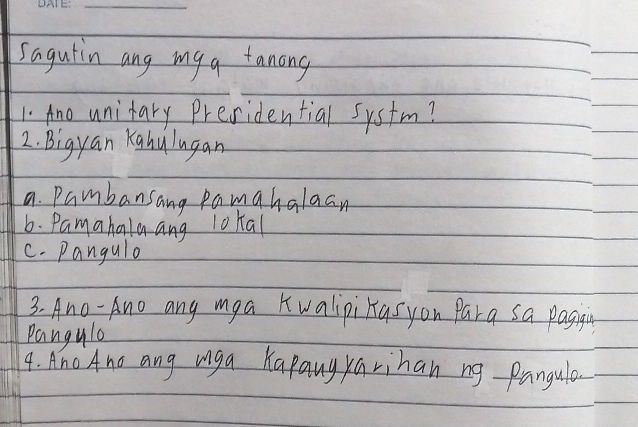 DATE:
Sagutin ang mga tanong
1. Ano unitary Presidential systm?
2. Bigyan Kahulugan
a. Pambansang Pamahalaan
b. Pamahala ang lokal
c. Pangulo
3. Ano-Ano ang mga Kwalipikasyon Para sa pagigin
Pangulo
4. Ano Ano ang mga Kapangyarihan ng Pangulo.